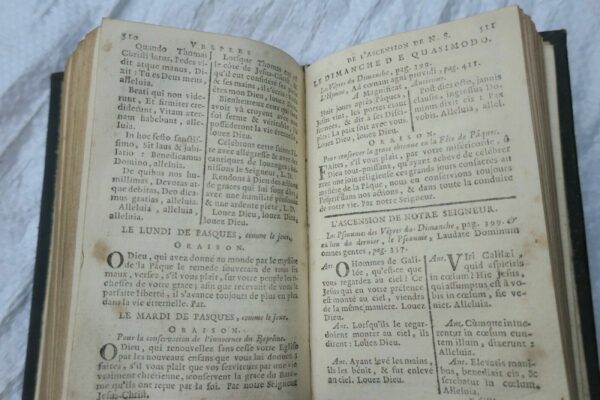 510
VESPRES
Quando Thomas
Christi latus, Pedes vi-
dit atque manus, Di-
xit : Tu es Deus meus,
alleluia.
Beati qui non vide-
runt, Et firmiter cre-
diderunt, Vitam æter-
nam habebunt, alle-
luia.
In hoc festo sanctissi-
simo, Sit laus & jubi-
latio : Benedicamus
Domino, alleluia.
De quibus nos hu-
millimas, Devotas at-
que debitas, Deo dica-
mus gratias, alleluia.
Alleluia, alleluia,
alleluia.
Lorsque Thomas eut vu
le côté de Jesus-Christ,
& ses mains, il
Louez Dieu.
Bienheureux ceux qui
foi ferme & véritable,
possederont la vie éternelle.
Louez Dieu.
Célébrons cette sainte fê-
te avec allégresse & avec des
cantiques de louanges : bé-
nissons le Seigneur, L. D.
Rendons à Dieu des actions
de graces qui lui sont dûes,
avec une humilité profonde
& une ardente piété, L. D.
Louez Dieu, louez Dieu,
louez Dieu.
LE LUNDI DE PASQUES, comme le jour.
ORAISON.
O Dieu, qui avez donné au monde par le mystére
de la Pâque le remede souverain de tous ses
maux, versez, s'il vous plaît, sur votre peuple les ri-
chesses de votre grace ; afin que recevant de vous la
parfaite liberté, il s'avance toujours de plus en plus
dans la vie éternelle. Par.
LE MARDI DE PASQUES, comme le jour.
ORAISON.
Pour la conservation de l'innocence du Baptême.
O Dieu, qui renouvellez sans cesse votre Eglise
par les nouveaux enfans que vous lui donnez :
faites, s'il vous plaît que vos serviteurs par une vie
vraiment chrétienne, conservent la grace du Baptê-
me qu'ils ont reçue par la foi. Par notre Seigneur
Jesus-Christ.
DE L'ASCENSION DE N. S.
511
LE DIMANCHE DE QUASIMODO.
Les Vêpres du Dimanche, pag. 199.
L'Hymne, Ad cœnam agni providi, pag. 411.
A Magnificat.
Huit jours après Pâques,
Jesus vint, les portes étant
fermées, & dit à ses Disci-
ples : La paix soit avec vous.
Louez Dieu, louez Dieu.
Post dies octo, januis
clausis, ingressus Domi-
nus, dixit eis : Pax
vobis. Alleluia, allel.
ORAISON.
Pour conserver la grace obtenue en la Fête de Pâque.
FAites, s'il vous plaît, par votre miséricorde, ô
Dieu tout-puissant, qu'ayant achevé de célébrer
avec une joie religieuse ces grands jours consacrés au
mystére de la Pâque, nous en conservions toujours
l'esprit dans nos actions, & dans toute la conduite
de votre vie. Par notre Seigneur.
L'ASCENSION DE NOTRE SEIGNEUR.
Les Pseaumes des Vêpres du Dimanche, pag. 199. &
au lieu du dernier, le Pseaume, Laudate Dominum
omnes gentes, pag. 257.
Ant. O Hommes de Gali-
lée, qu'est-ce que
vous regardez au ciel ? Ce
Jesus qui en votre présence
est monté au ciel, viendra
de la même maniere. Louez
Dieu.
Ant. Lorsqu'ils le regar-
doient monter au ciel, ils
dirent : Louez Dieu.
Ant. Ayant levé les mains,
il les bénit, & fut enlevé
au ciel. Louez Dieu.
Ant. VIri Galilæi,
quid aspicitis
in cœlum ? Hic Jesus,
qui assumptus est à vo-
bis in cœlum, sic ve-
niet. Alleluia.
Ant. Cumque intue-
rentur in cœlum eun-
tem illum, dixerunt :
Alleluia.
Ant. Elevatis mani-
bus, benedixit eis, &
ferebatur in cœlum.
Allel.